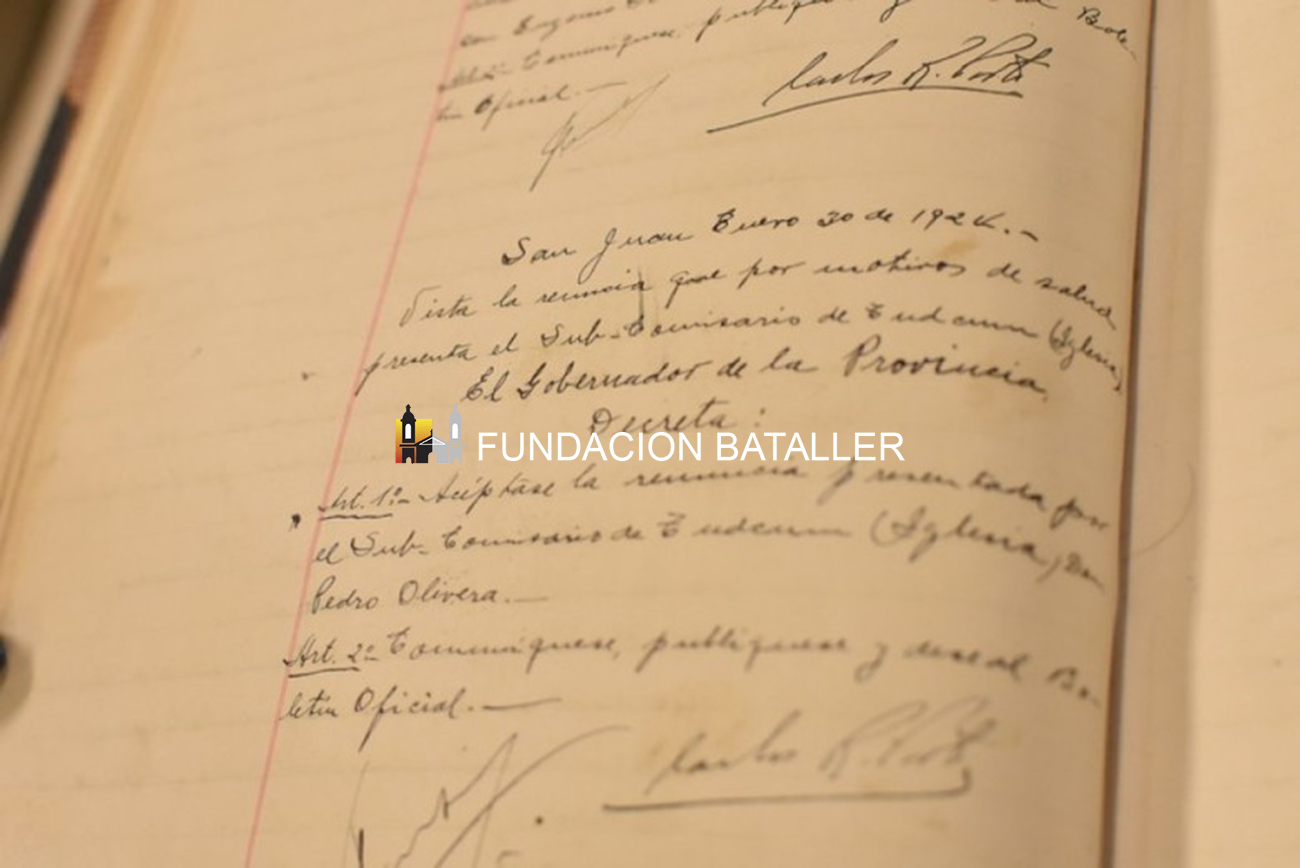 Art. 2º Comuníquese, publíquese y Bole-
tín Oficial.—
Carlos R. Porto
San Juan Enero 30 de 1924.-
Vista la renuncia que por motivos de salud
presenta el Sub-Comisario de Tudcum (Iglesia)
El Gobernador de la Provincia
Decreta:
FUNDACION BATALLER
Art. 1º- Acéptase la renuncia presentada por
el Sub-Comisario de Tudcum (Iglesia) Don
Pedro Olivera.—
Art. 2º- Comuníquese, publíquese y dese al Bo-
letín Oficial.—
Carlos R. Porto